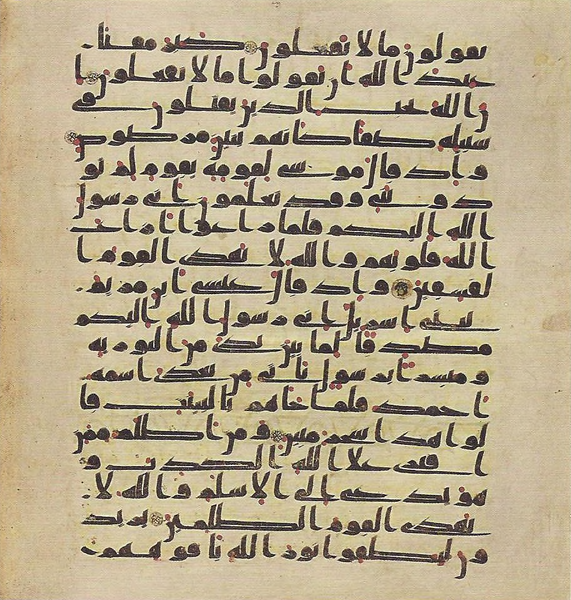 تقولون ما لا تفعلون كبر مقتا
عند الله ان تقولوا ما لا تفعلون ا
ن الله يحب الذين يقتلون في
سبيله صفا كانهم بنين مرصوص
و اذ قال موسى لقومه يقوم لم تو
ذونني وقد تعلمون اني رسول
الله اليكم فلما زاغوا ازاغ
الله قلوبهم والله لا يهدي القوم ا
لفسقين واذ قال عيسى ابن مريم
يبني اسريل اني رسول الله اليكم
مصدقا لما بين يدي من التوريه
ومبشرا برسول ياتي من بعدي اسمه
احمد فلما جاهم بالبينت قا
لوا هذا سحر مبين ومن اظلم ممن
افترى على الله الكذب و
هو يدعى الى الاسلم والله لا
يهدي القوم الظلمين يريد
ون ليطفوا نور الله بافوههم